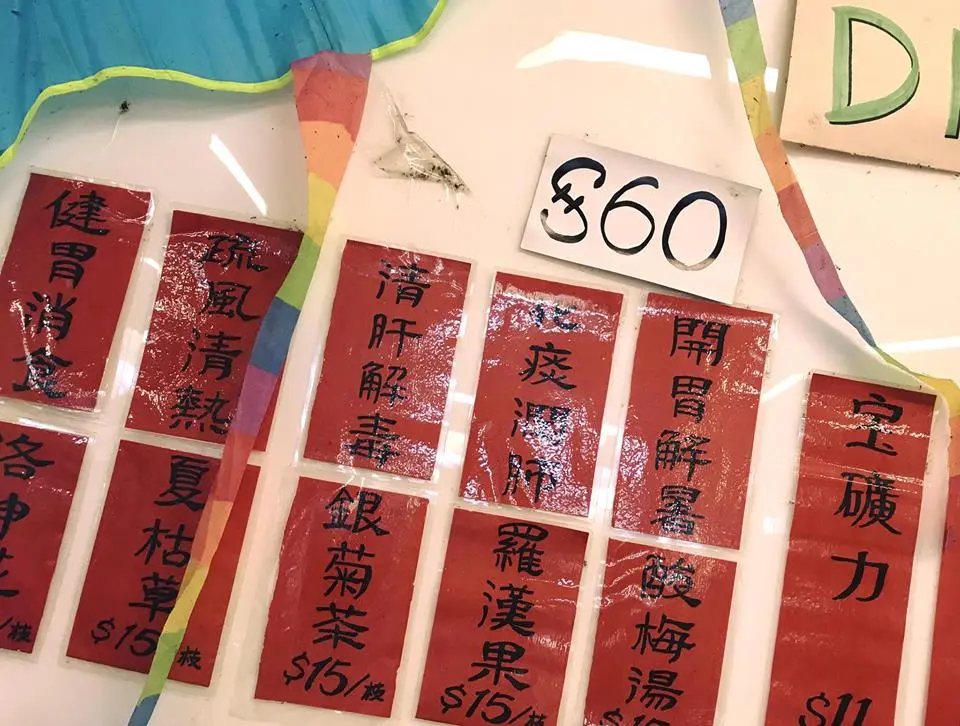 D
$60
健胃消食
疏風清熱
清肝解毒
化痰潤肺
開胃解暑
宝礦力
$11
洛神花
/枝
夏枯草
$15 枝
銀菊茶
$15/枝
羅漢果
$15/枝
酸梅湯